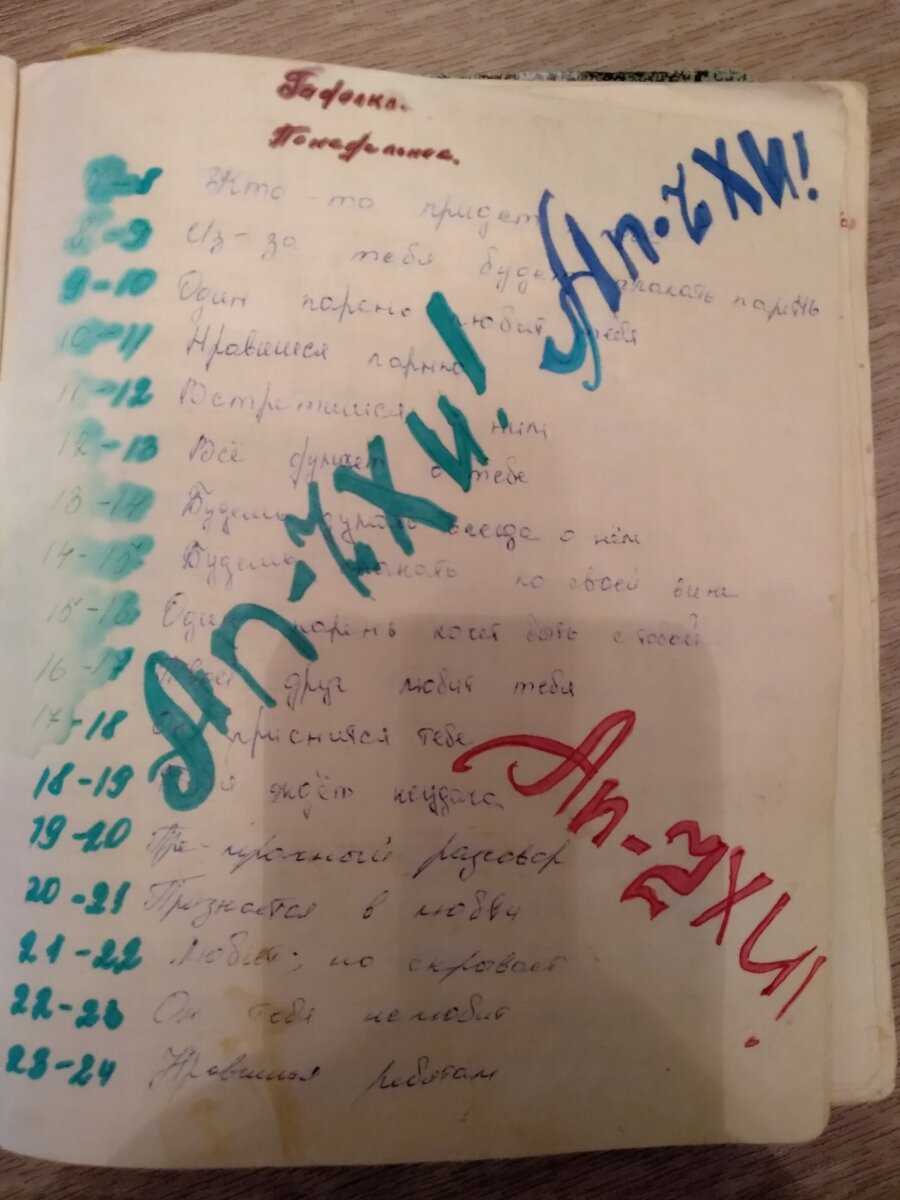 Гадалка.
Понедельник.
7-8 Кто-то придет
8-9 Из-за тебя будет плакать парень
9-10 Один парень любит тебя
10-11 Нравишся парню
11-12 Встретишися ним
12-13 Всё думает о тебе
13-14 Будешь думать всегда о нём
14-15 Будешь по своей вине
15-16 Один парень хочет быть с тобой
16-17 друг любит тебя
17-18 приснится тебе
18-19 ждёт неудача
19-20 разговор
20-21 Признается в любви
21-22 Любит, но скрывает
22-23 Он тебя не любит
23-24 Нравишся ребятам
Ап-чХи!
Ап-чХи!
Ап-чХи!